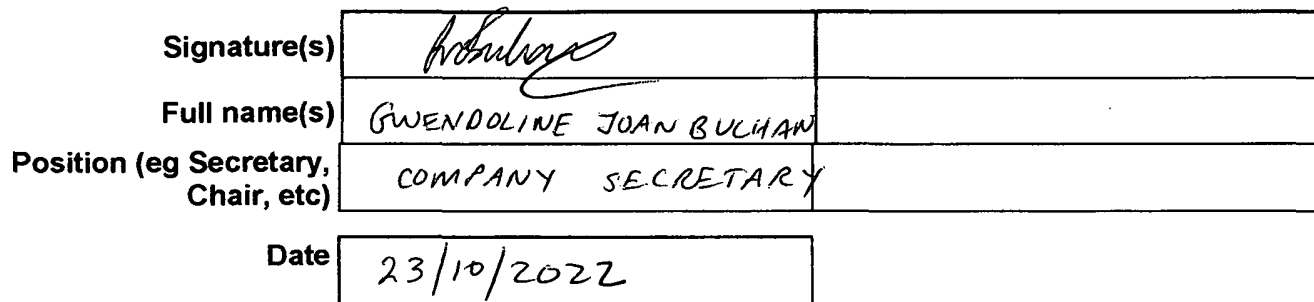 Signature(s)
Full name(s) GWENDOLINE JOAN BUCHAN
Position (eg Secretary, COMPANY SECRETARY
Chair, etc)
Date 23/10/2022